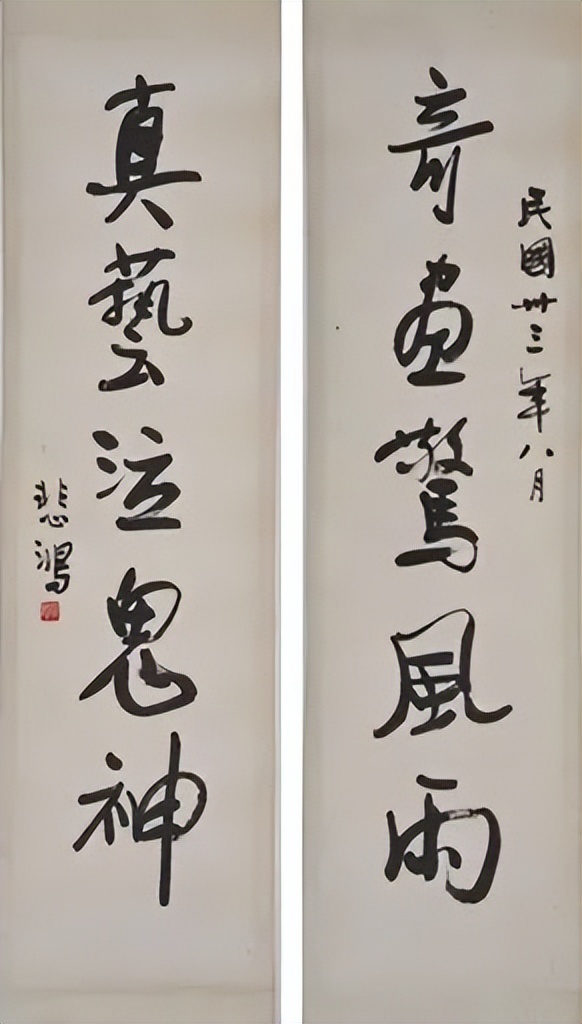 民國卅三年八月
奇畫驚風雨
真藝泣鬼神
悲鴻